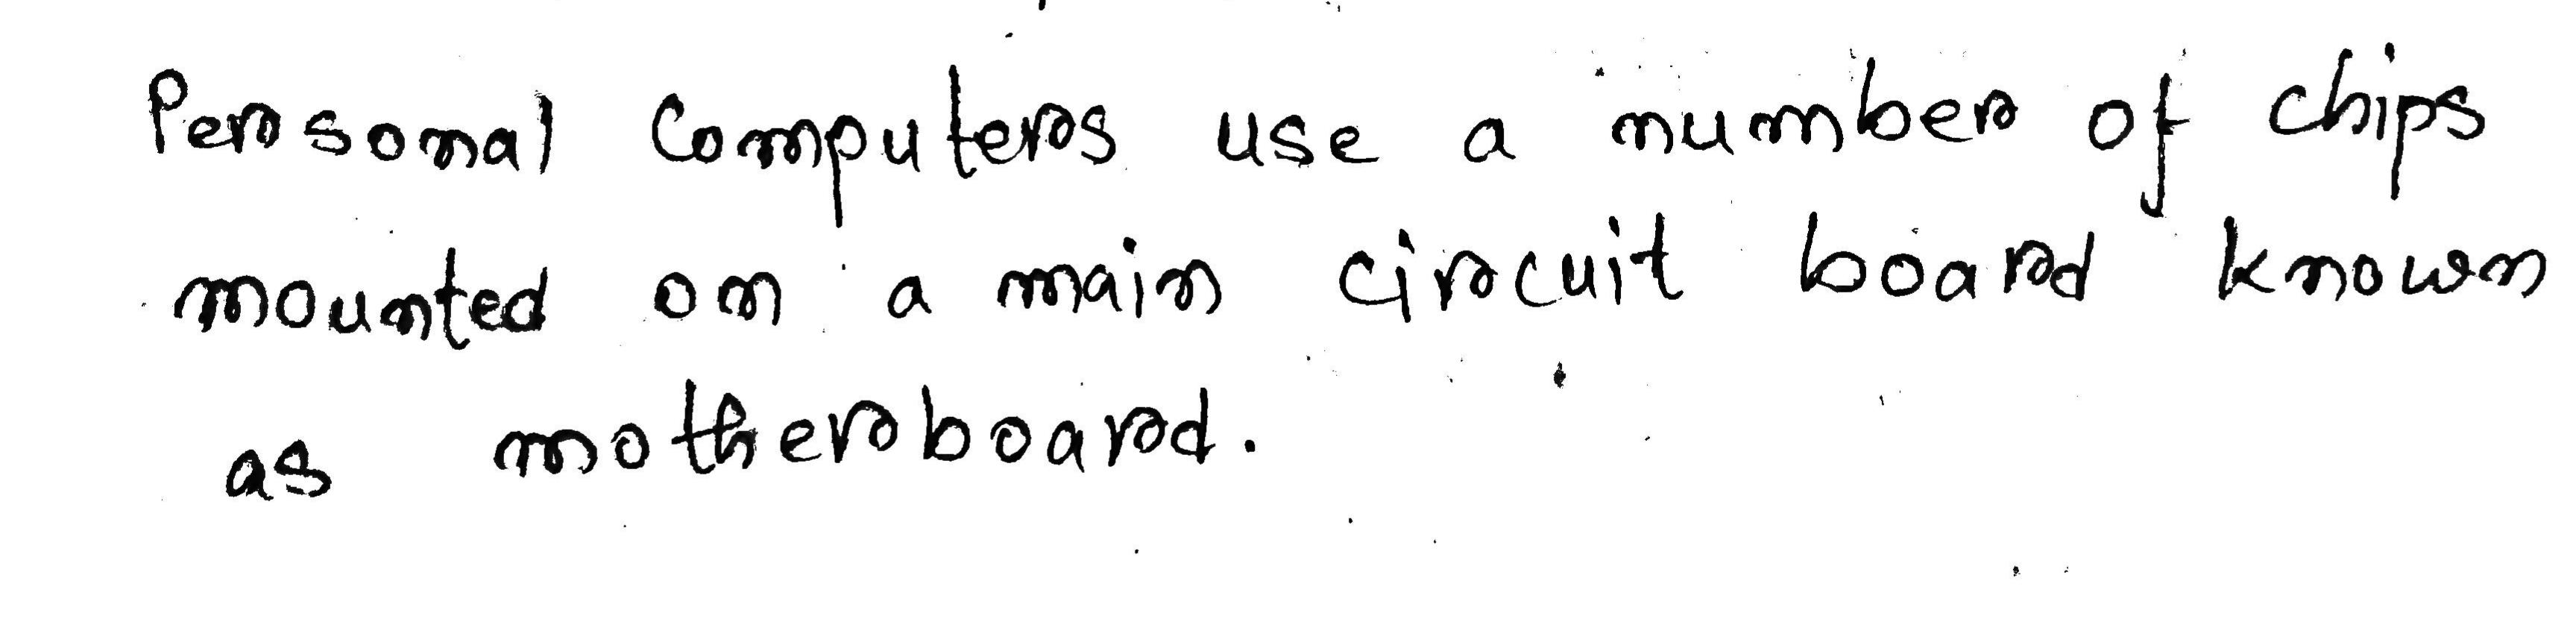 Personal Computers use a number of chips
mounted on a main circuit board known
as motherboard.